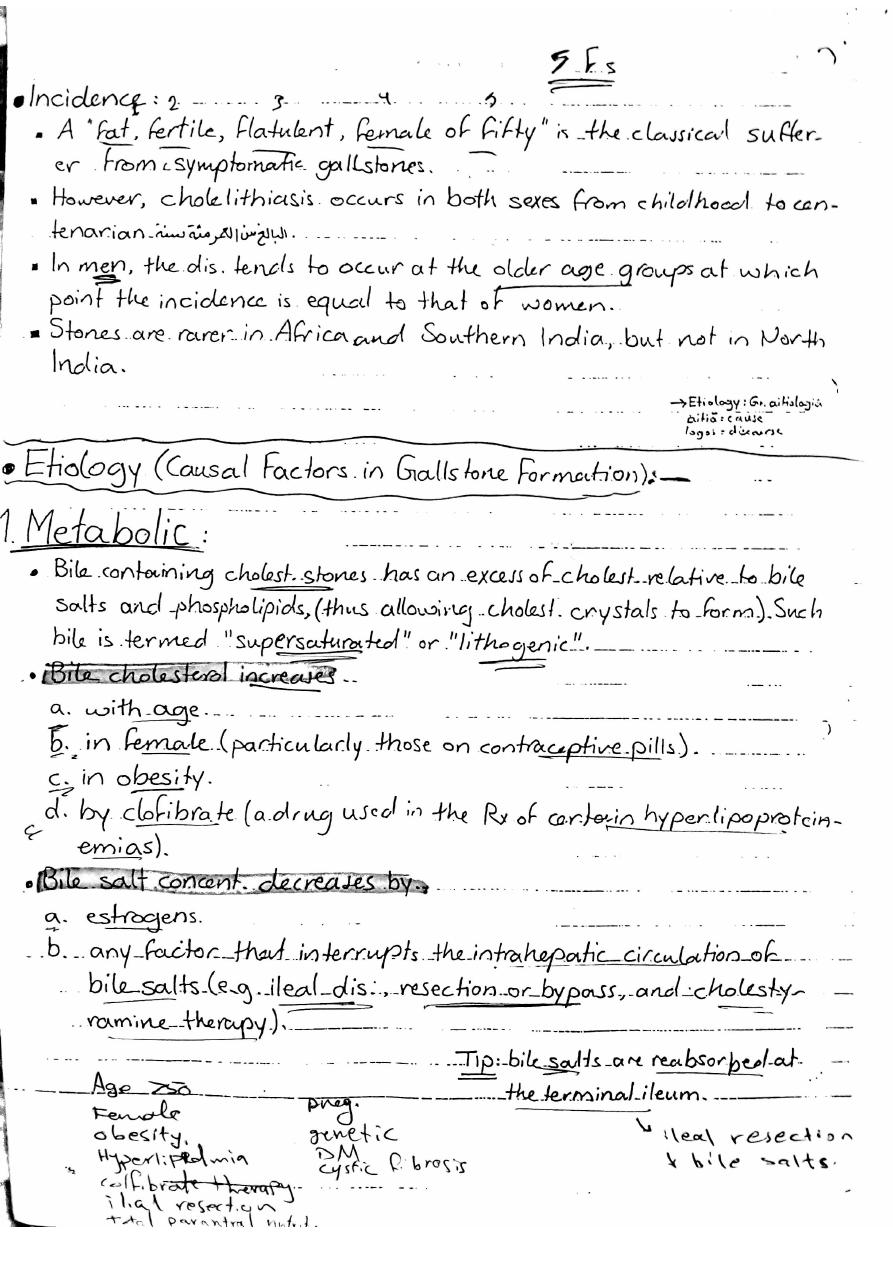 5 Fs
• Incidence: 2 3 4 5
▪ A "fat, fertile, flatulent, female of fifty" is the classical suffer-
er from symptomatic gallstones.
▪ However, cholelithiasis occurs in both sexes from childhood to cen-
tenarian
▪ In men, the dis. tends to occur at the older age groups at which
point the incidence is equal to that of women.
▪ Stones are rarer in Africa and Southern India, but not in North
India.
→ Etiology: Gr. aitiologia
aitia: cause
logoi: discourse
• Etiology (Causal Factors in Gallstone Formation):-
1. Metabolic:
• Bile containing cholest. stones has an excess of cholest relative to bile
salts and phospholipids, (thus allowing cholest. crystals to form). Such
bile is termed "supersaturated" or "lithogenic".
• Bile cholesterol increases
a. with age
b. in female (particularly those on contraceptive pills).
c. in obesity.
d. by clofibrate (a drug used in the Rx of certain hyperlipoprotein-
emias).
• Bile salt concent. decreases by
a. estrogens.
b. any factor that interrupts the intrahepatic circulation of
bile salts (e.g. ileal dis., resection or bypass, and cholesty-
ramine therapy).
Tip: bile salts are reabsorbed at
the terminal ileum.
↳ ileal resection
↓ bile salts.
Age >50
Female
obesity.
Hyperlipidmia
colfibrate therapy
ilial resection
total parantral nutri.
preg.
genetic
DM
cystic fibrosis